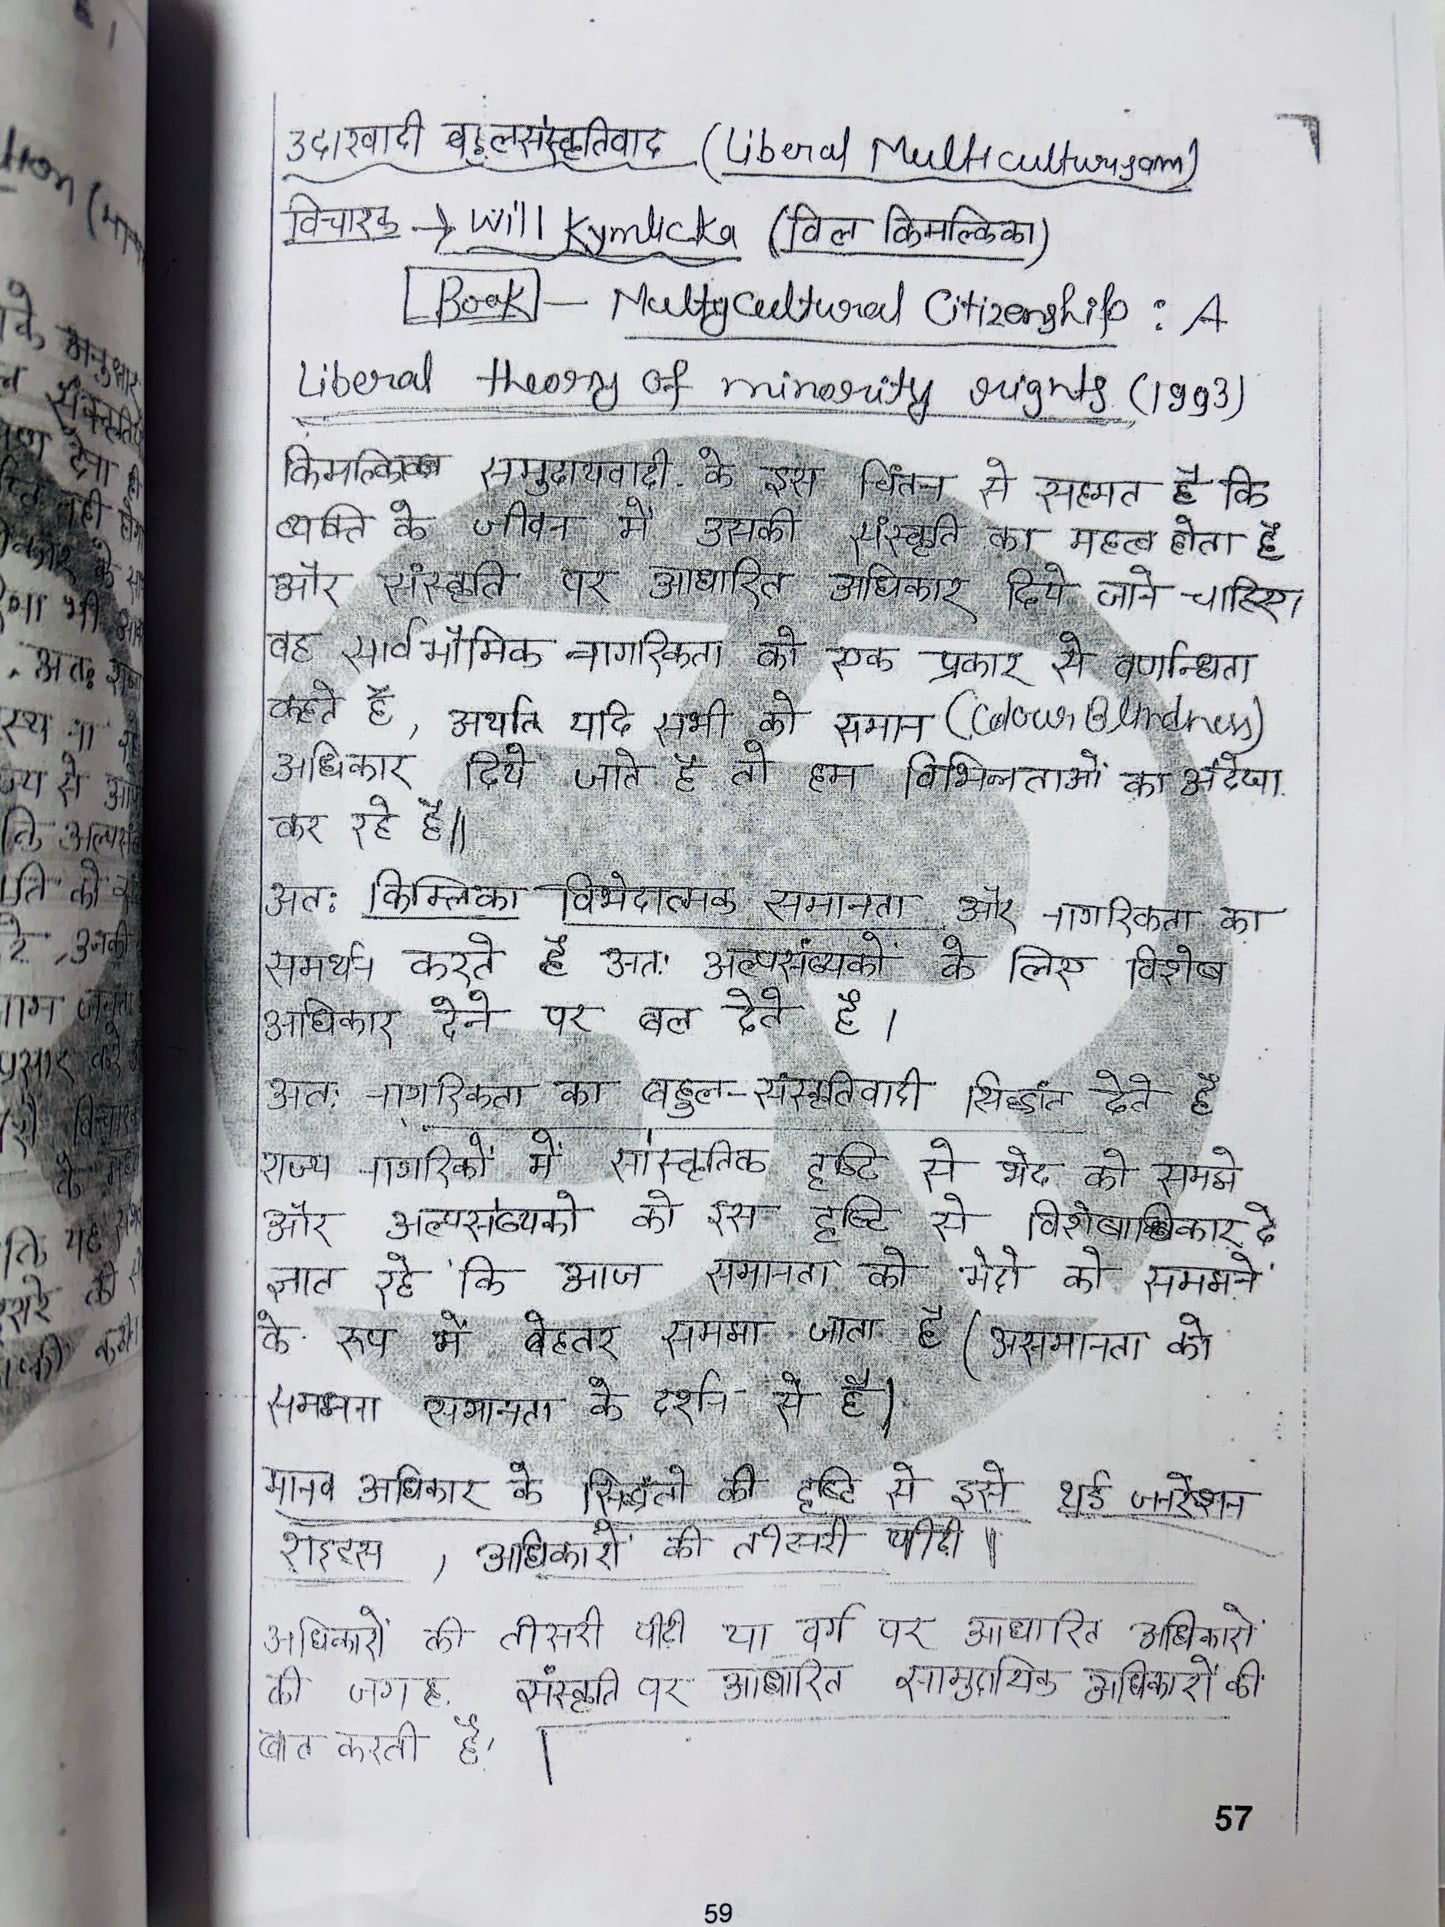 उदारवादी बहुलसंस्कृतिवाद (Liberal Multiculturism)
विचारक → Will Kymlicka (विल किमल्किका)
Book — Multycultural Citizenship : A
Liberal theory of minority rights (1993)
किमल्किका समुदायवादी के इस चिंतन से सहमत है कि
व्यक्ति के जीवन में उसकी संस्कृति का महत्व होता है
और संस्कृति पर आधारित अधिकार दिये जाने चाहिए।
वह सार्वभौमिक नागरिकता को एक प्रकार से वर्णान्धिता
कहते हैं, अर्थात यदि सभी को समान (Colour Blindness)
अधिकार दिये जाते है तो हम विभिन्नताओं का अंदेखा
कर रहे हैं॥
अतः किम्लिका विभेदात्मक समानता और नागरिकता का
समर्थन करते है अतः अल्पसंख्यकों के लिए विशेष
अधिकार देने पर बल देते है।
अतः नागरिकता का बहुल-संस्कृतिवादी सिद्धांत देते है
राज्य नागरिकों में सांस्कृतिक दृष्टि से भेद को समझे
और अल्पसंख्यको को इस दृष्टि से विशेषाधिकार दे
ज्ञात रहे कि आज समानता को भेदो को समझने
के रूप में बेहतर समझा जाता है (असमानता को
समझना समानता के दर्शन से है।
मानव अधिकार के सिद्धांतो की दृष्टि से इसे थर्ड जनरेशन
राइट्स , अधिकारों की तीसरी पीढी॥
अधिकारों की तीसरी पीढी या वर्ग पर आधारित अधिकारो
की जगह संस्कृति पर आधारित सामुदायिक अधिकारों की
बात करती है।
57
59